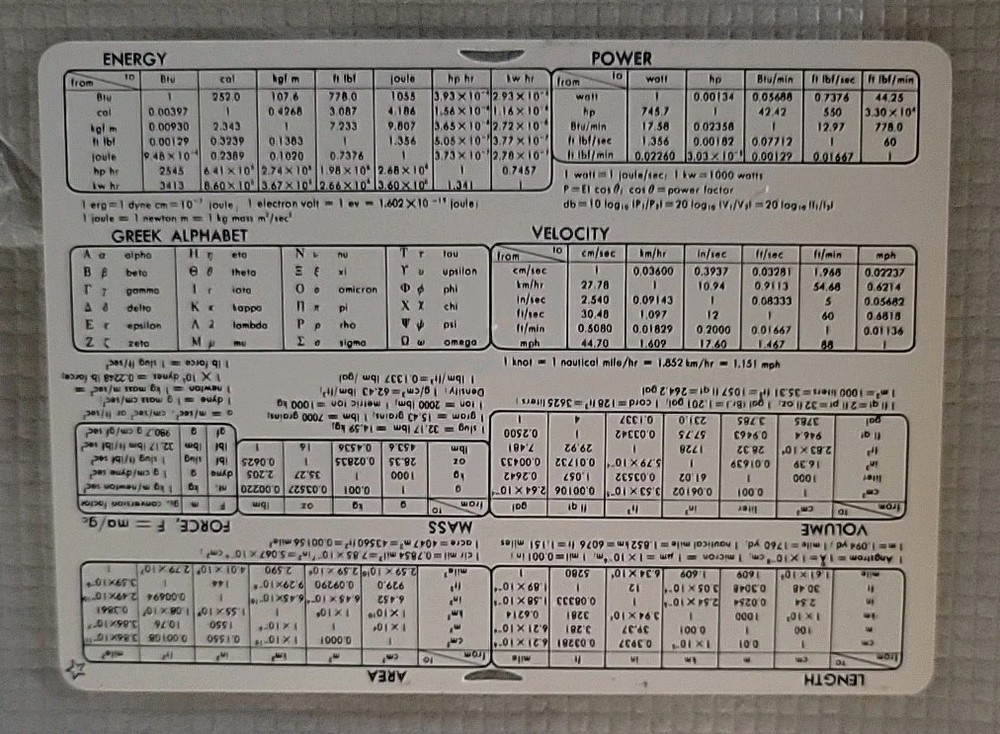 ENERGY
from to Btu cal kgf m ft lbf joule hp hr kw hr
Btu 1 252.0 107.6 778.0 1055 3.93×10⁻⁴ 2.93×10⁻⁴
cal 0.00397 1 0.4268 3.087 4.186 1.56×10⁻⁶ 1.16×10⁻⁶
kgf m 0.00930 2.343 1 7.233 9.807 3.65×10⁻⁶ 2.72×10⁻⁶
ft lbf 0.00129 0.3239 0.1383 1 1.356 5.05×10⁻⁷ 3.77×10⁻⁷
joule 9.48×10⁻⁴ 0.2389 0.1020 0.7376 1 3.73×10⁻⁷ 2.78×10⁻⁷
hp hr 2545 6.41×10⁵ 2.74×10⁵ 1.98×10⁶ 2.68×10⁶ 1 0.7457
kw hr 3413 8.60×10⁵ 3.67×10⁵ 2.66×10⁶ 3.60×10⁶ 1.341 1
1 erg = 1 dyne cm = 10⁻⁷ joule, 1 electron volt = 1 ev = 1.602×10⁻¹⁹ joule;
1 joule = 1 newton m = 1 kg mass m²/sec²
POWER
from to watt hp Btu/min ft lbf/sec ft lbf/min
watt 1 0.00134 0.05688 0.7376 44.25
hp 745.7 1 42.42 550 3.30×10⁴
Btu/min 17.58 0.02358 1 12.97 778.0
ft lbf/sec 1.356 0.00182 0.07712 1 60
ft lbf/min 0.02260 3.03×10⁻⁵ 0.00129 0.01667 1
1 watt = 1 joule/sec; 1 kw = 1000 watts
P = EI cos θ; cos θ = power factor
db = 10 log₁₀ |P₁/P₂| = 20 log₁₀ |V₁/V₂| = 20 log₁₀ |I₁/I₂|
GREEK ALPHABET
Α α alpha Η η eta Ν ν nu Τ τ tau
Β β beta Θ θ theta Ξ ξ xi Υ υ upsilon
Γ γ gamma Ι ι iota Ο ο omicron Φ φ phi
Δ δ delta Κ κ kappa Π π pi Χ χ chi
Ε ε epsilon Λ λ lambda Ρ ρ rho Ψ ψ psi
Ζ ζ zeta Μ μ mu Σ σ sigma Ω ω omega
VELOCITY
from to cm/sec km/hr in/sec ft/sec ft/min mph
cm/sec 1 0.03600 0.3937 0.03281 1.968 0.02237
km/hr 27.78 1 10.94 0.9113 54.68 0.6214
in/sec 2.540 0.09143 1 0.08333 5 0.05682
ft/sec 30.48 1.097 12 1 60 0.6818
ft/min 0.5080 0.01829 0.2000 0.01667 1 0.01136
mph 44.70 1.609 17.60 1.467 88 1
1 knot = 1 nautical mile/hr = 1.852 km/hr = 1.151 mph
LENGTH
from to cm m km in ft mile
cm 1 0.01 1×10⁻⁵ 0.3937 0.03281 6.21×10⁻⁶
m 100 1 0.001 39.37 3.281 6.21×10⁻⁴
km 1×10⁵ 1000 1 3.94×10⁴ 3281 0.6214
in 2.54 0.0254 2.54×10⁻⁵ 1 0.08333 1.58×10⁻⁵
ft 30.48 0.3048 3.05×10⁻⁴ 12 1 1.89×10⁻⁴
mile 1.61×10⁵ 1609 1.609 6.34×10⁴ 5280 1
1 Angstrom = 1 Å = 1×10⁻⁸ cm, 1 micron = 1 μm = 1×10⁻⁶ m, 1 mil = 0.001 in;
1 m = 1.094 yd, 1 mile = 1760 yd, 1 nautical mile = 1.852 km = 6076 ft = 1.151 miles
AREA
from to cm² m² km² in² ft² mile²
cm² 1 0.0001 1×10⁻¹⁰ 0.1550 0.00108 3.86×10⁻¹¹
m² 1×10⁴ 1 1×10⁻⁶ 1550 10.76 3.86×10⁻⁷
km² 1×10¹⁰ 1×10⁶ 1 1.55×10⁹ 1.08×10⁷ 0.3861
in² 6.452 6.45×10⁻⁴ 6.45×10⁻¹⁰ 1 0.00694 2.49×10⁻¹⁰
ft² 929.0 0.09290 9.29×10⁻⁸ 144 1 3.59×10⁻⁸
mile² 2.59×10¹⁰ 2.59×10⁶ 2.590 4.01×10⁹ 2.79×10⁷ 1
1 cir mil = 0.7854 mil² = 7.85×10⁻⁷ in² = 5.067×10⁻⁶ cm²;
1 acre = 4047 m² = 43560 ft² = 0.00156 mile²
VOLUME
from to cm³ liter in³ ft³ fl qt gal
cm³ 1 0.001 0.06102 3.53×10⁻⁵ 0.00106 2.64×10⁻⁴
liter 1000 1 61.02 0.03532 1.057 0.2642
in³ 16.39 0.01639 1 5.79×10⁻⁴ 0.01732 0.00433
ft³ 2.83×10⁴ 28.32 1728 1 29.92 7.481
fl qt 946.4 0.9463 57.75 0.03342 1 0.2500
gal 3785 3.785 231.0 0.1337 4 1
1 fl qt = 2 fl pt = 32 fl oz, 1 gal (Br.) = 1.201 gal, 1 cord = 128 ft³ = 3625 liters;
1 m³ = 1000 liters = 35.31 ft³ = 1057 fl qt = 264.2 gal
MASS
from to g kg oz lbm
g 1 0.001 0.03527 0.00220
kg 1000 1 35.27 2.205
oz 28.35 0.02835 1 0.0625
lbm 453.6 0.4536 16 1
1 slug = 32.17 lbm = 14.59 kg;
1 gram = 15.43 grains, 1 lbm = 7000 grains;
1 ton = 2000 lbm, 1 metric ton = 1000 kg
Density: 1 g/cm³ = 62.43 lbm/ft³;
1 lbm/ft³ = 0.1337 lbm/gal
FORCE, F = ma/gc
F m gc, conversion factor
nt. kg 1 kg m/newton sec²
dyne g 1 g cm/dyne sec²
lbf slug 1 slug ft/lbf sec²
lbf lbm 32.17 lbm ft/lbf sec²
gf g 980.7 g cm/gf sec²
a = m/sec², cm/sec² or ft/sec²
1 dyne = 1 g mass cm/sec²;
1 newton = 1 kg mass m/sec² =
1×10⁵ dynes = 0.2248 lb force;
1 lb force = 1 slug ft/sec²